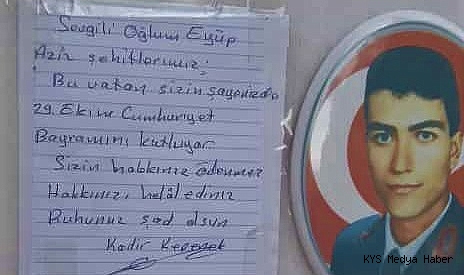 Sevgili Oğlum Eyüp
Aziz şehitlerimiz;
Bu vatan sizin sayenizde
29. Ekim Cumhuriyet
Bayramını kutluyor
Sizin hakkınız ödenmez
Hakkınızı helal ediniz
Ruhunuz şad olsun
Kadir
KYS Medya Haber